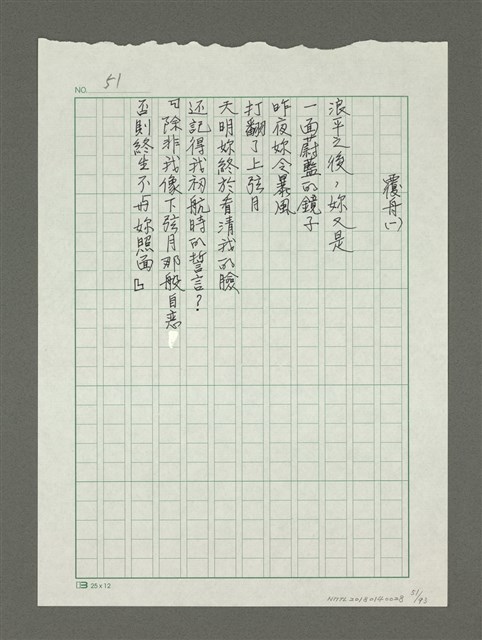 NO. 51
覆舟(一)
浪平之後，妳又是
一面蔚藍的鏡子
昨夜妳令暴風
打翻了上弦月
天明妳終於看清我的臉
还記得我初航時的誓言？
『除非我像下弦月那般自恋
否則終生不再妳照面』
25×12
NMTL 2018 014 0028 51/93